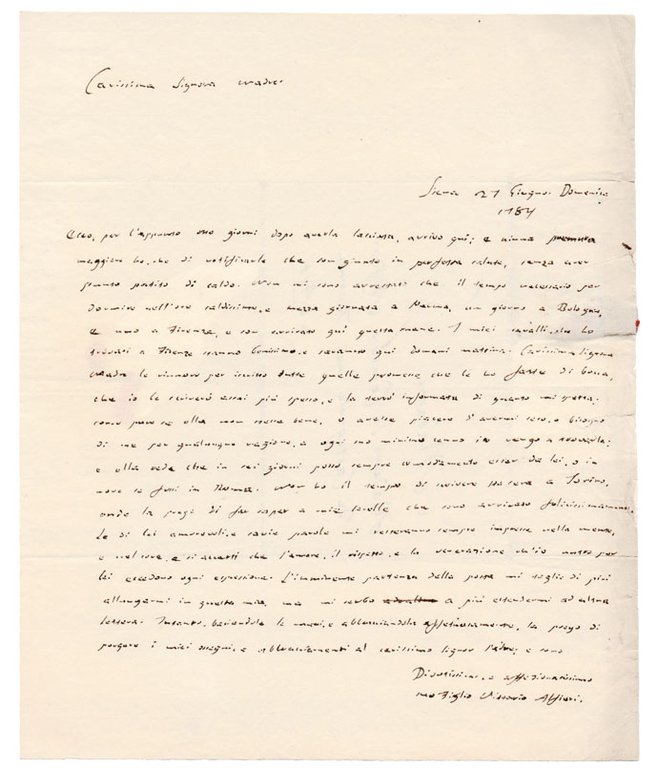 Carissima Signora Madre.
Siena 27 Giugno. Domenica
1784
Eccomi, per l'appunto otto giorni dopo averla lasciata, arrivo qui; e niuna premura
maggiore ho, che di notificarle che son giunto in perfetta salute, senza aver
punto patito di caldo. Non mi sono arrestato che il tempo necessario per
dormire nell'ore caldissime, e mezza giornata a Parma, un giorno a Bologna,
e uno a Firenze, e son arrivato qui questa mane. I miei cavalli, che ho
trovati a Firenze stanno benissimo, e saranno qui domani mattina. Carissima Signora
Madre le rinnovo per iscritto tutte quelle promesse che le ho fatte di bocca,
che io le scriverò assai più spesso, e la terrò informata di quanto mi spetta:
come pure se ella non stesse bene, o avesse piacere d'avermi seco, o bisogno
di me per qualunque ragione, a ogni suo minimo cenno io vengo a trovarla:
e ella veda che in sei giorni posso sempre comodamente esser da lei, o in
nove se fossi in Roma. Non ho il tempo di scrivere sta sera a Torino,
onde la prego di far saper a mie sorelle che sono arrivato felicissimamente.
Le di lei amorevoli, e savie parole mi resteranno sempre impresse nella mente,
e nel core, e si accerti che l'amore, il rispetto, e la venerazione ch'io nutro per
lei eccedono ogni espressione. L'imminente partenza della posta mi toglie di più
allungarmi in questa mia, ma mi serbo a più estendermi ad altra
lettera. Intanto, baciandole le mani, e abbracciandola affettuosamente, la prego di
porgere i miei ossequi, e abbracciamenti al carissimo Signor Padre; e sono
Divotissimo, e affezionatissimo
suo Figlio Vittorio Alfieri.